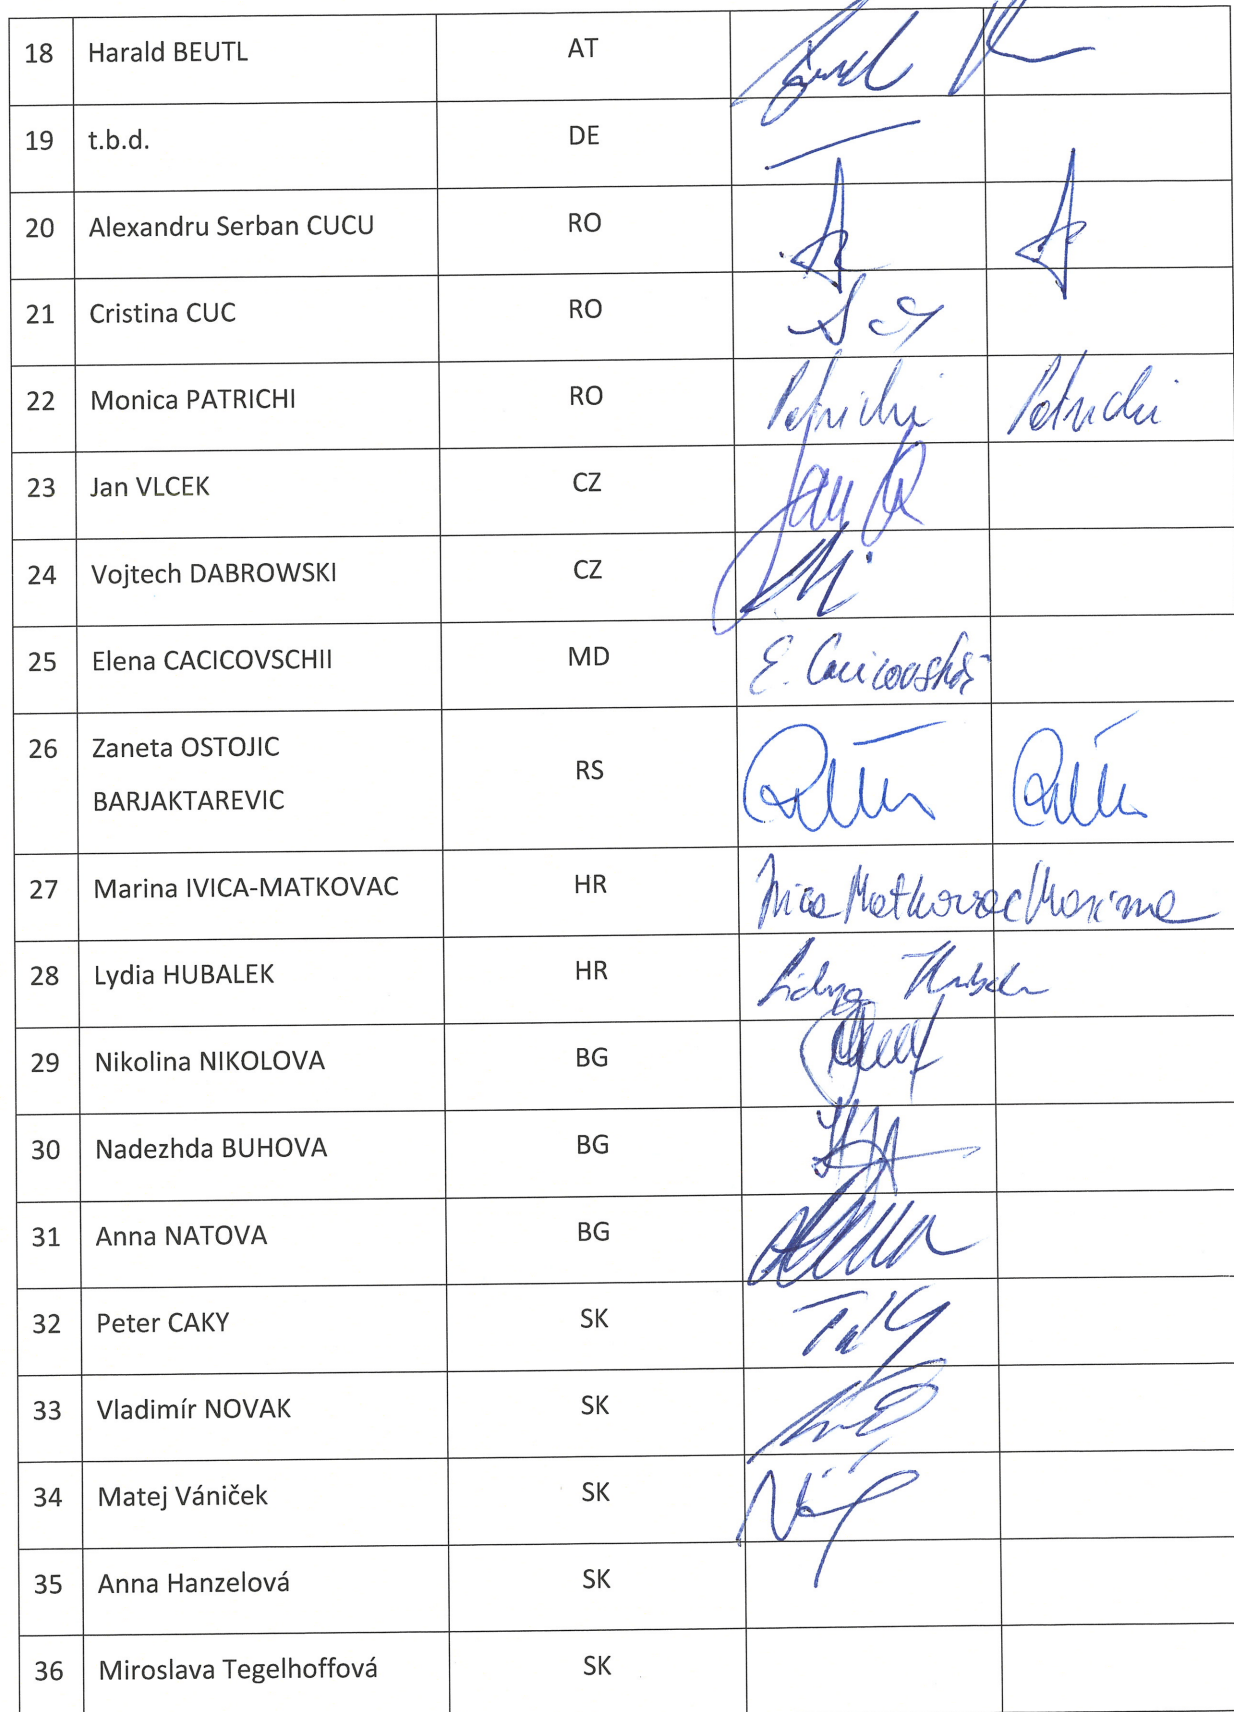 18 Harald BEUTL AT
19 t.b.d. DE
20 Alexandru Serban CUCU RO
21 Cristina CUC RO
22 Monica PATRICHI RO Patrichi Patrichi
23 Jan VLCEK CZ
24 Vojtech DABROWSKI CZ
25 Elena CACICOVSCHII MD
26 Zaneta OSTOJIC
BARJAKTAREVIC RS
27 Marina IVICA-MATKOVAC HR
28 Lydia HUBALEK HR
29 Nikolina NIKOLOVA BG
30 Nadezhda BUHOVA BG
31 Anna NATOVA BG
32 Peter CAKY SK
33 Vladimír NOVAK SK
34 Matej Vániček SK
35 Anna Hanzelová SK
36 Miroslava Tegelhoffová SK